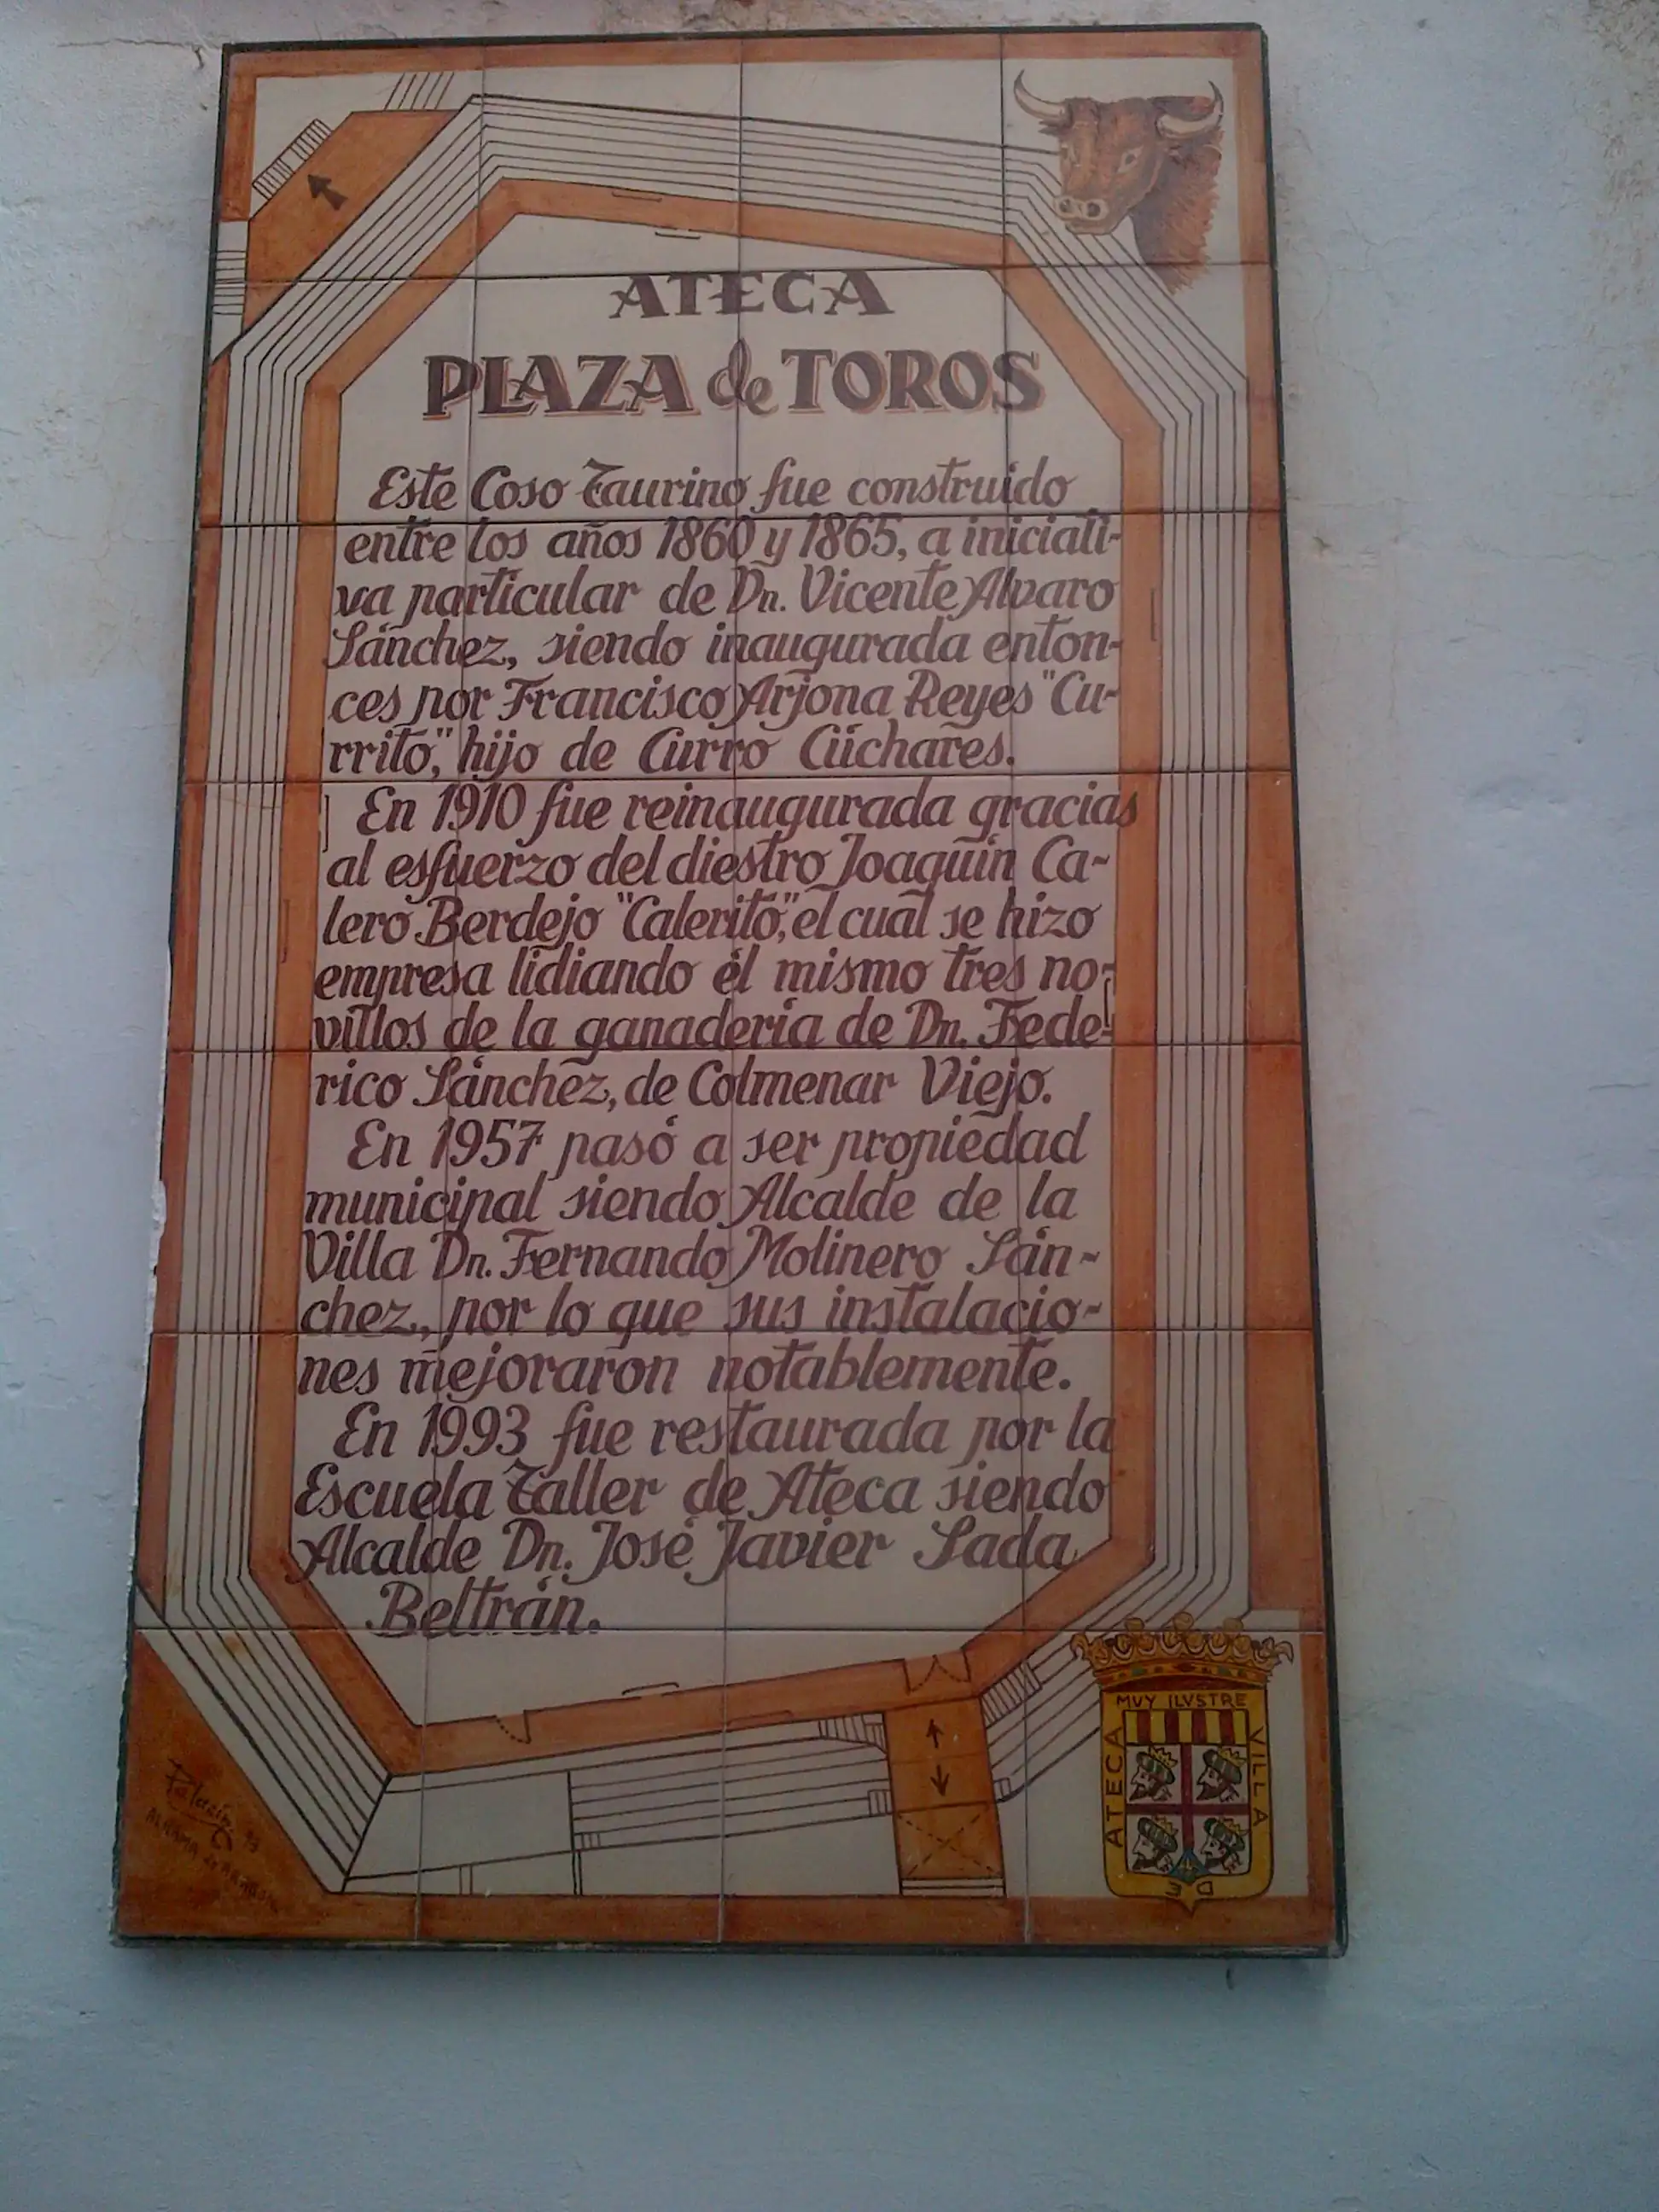 ATECA
PLAZA de TOROS
Este Coso Taurino fue construido
entre los años 1860 y 1865, a iniciati-
va particular de Dn. Vicente Alvaro
Sánchez, siendo inaugurada enton-
ces por Francisco Arjona Reyes "Cu-
rrito", hijo de Curro Cúchares.
En 1910 fue reinaugurada gracias
al esfuerzo del diestro Joaquín Ca-
lero Berdejo "Calerito", el cual se hizo
empresa lidiando él mismo tres no-
villos de la ganadería de Dn. Fede-
rico Sánchez, de Colmenar Viejo.
En 1957 pasó a ser propiedad
municipal siendo Alcalde de la
Villa Dn. Fernando Molinero Sán-
chez., por lo que sus instalacio-
nes mejoraron notablemente.
En 1993 fue restaurada por la
Escuela Taller de Ateca siendo
Alcalde Dn. José Javier Sada
Beltrán.
MUY ILVSTRE
VILLA
DE
ATECA
ALHAMA de ARAGON